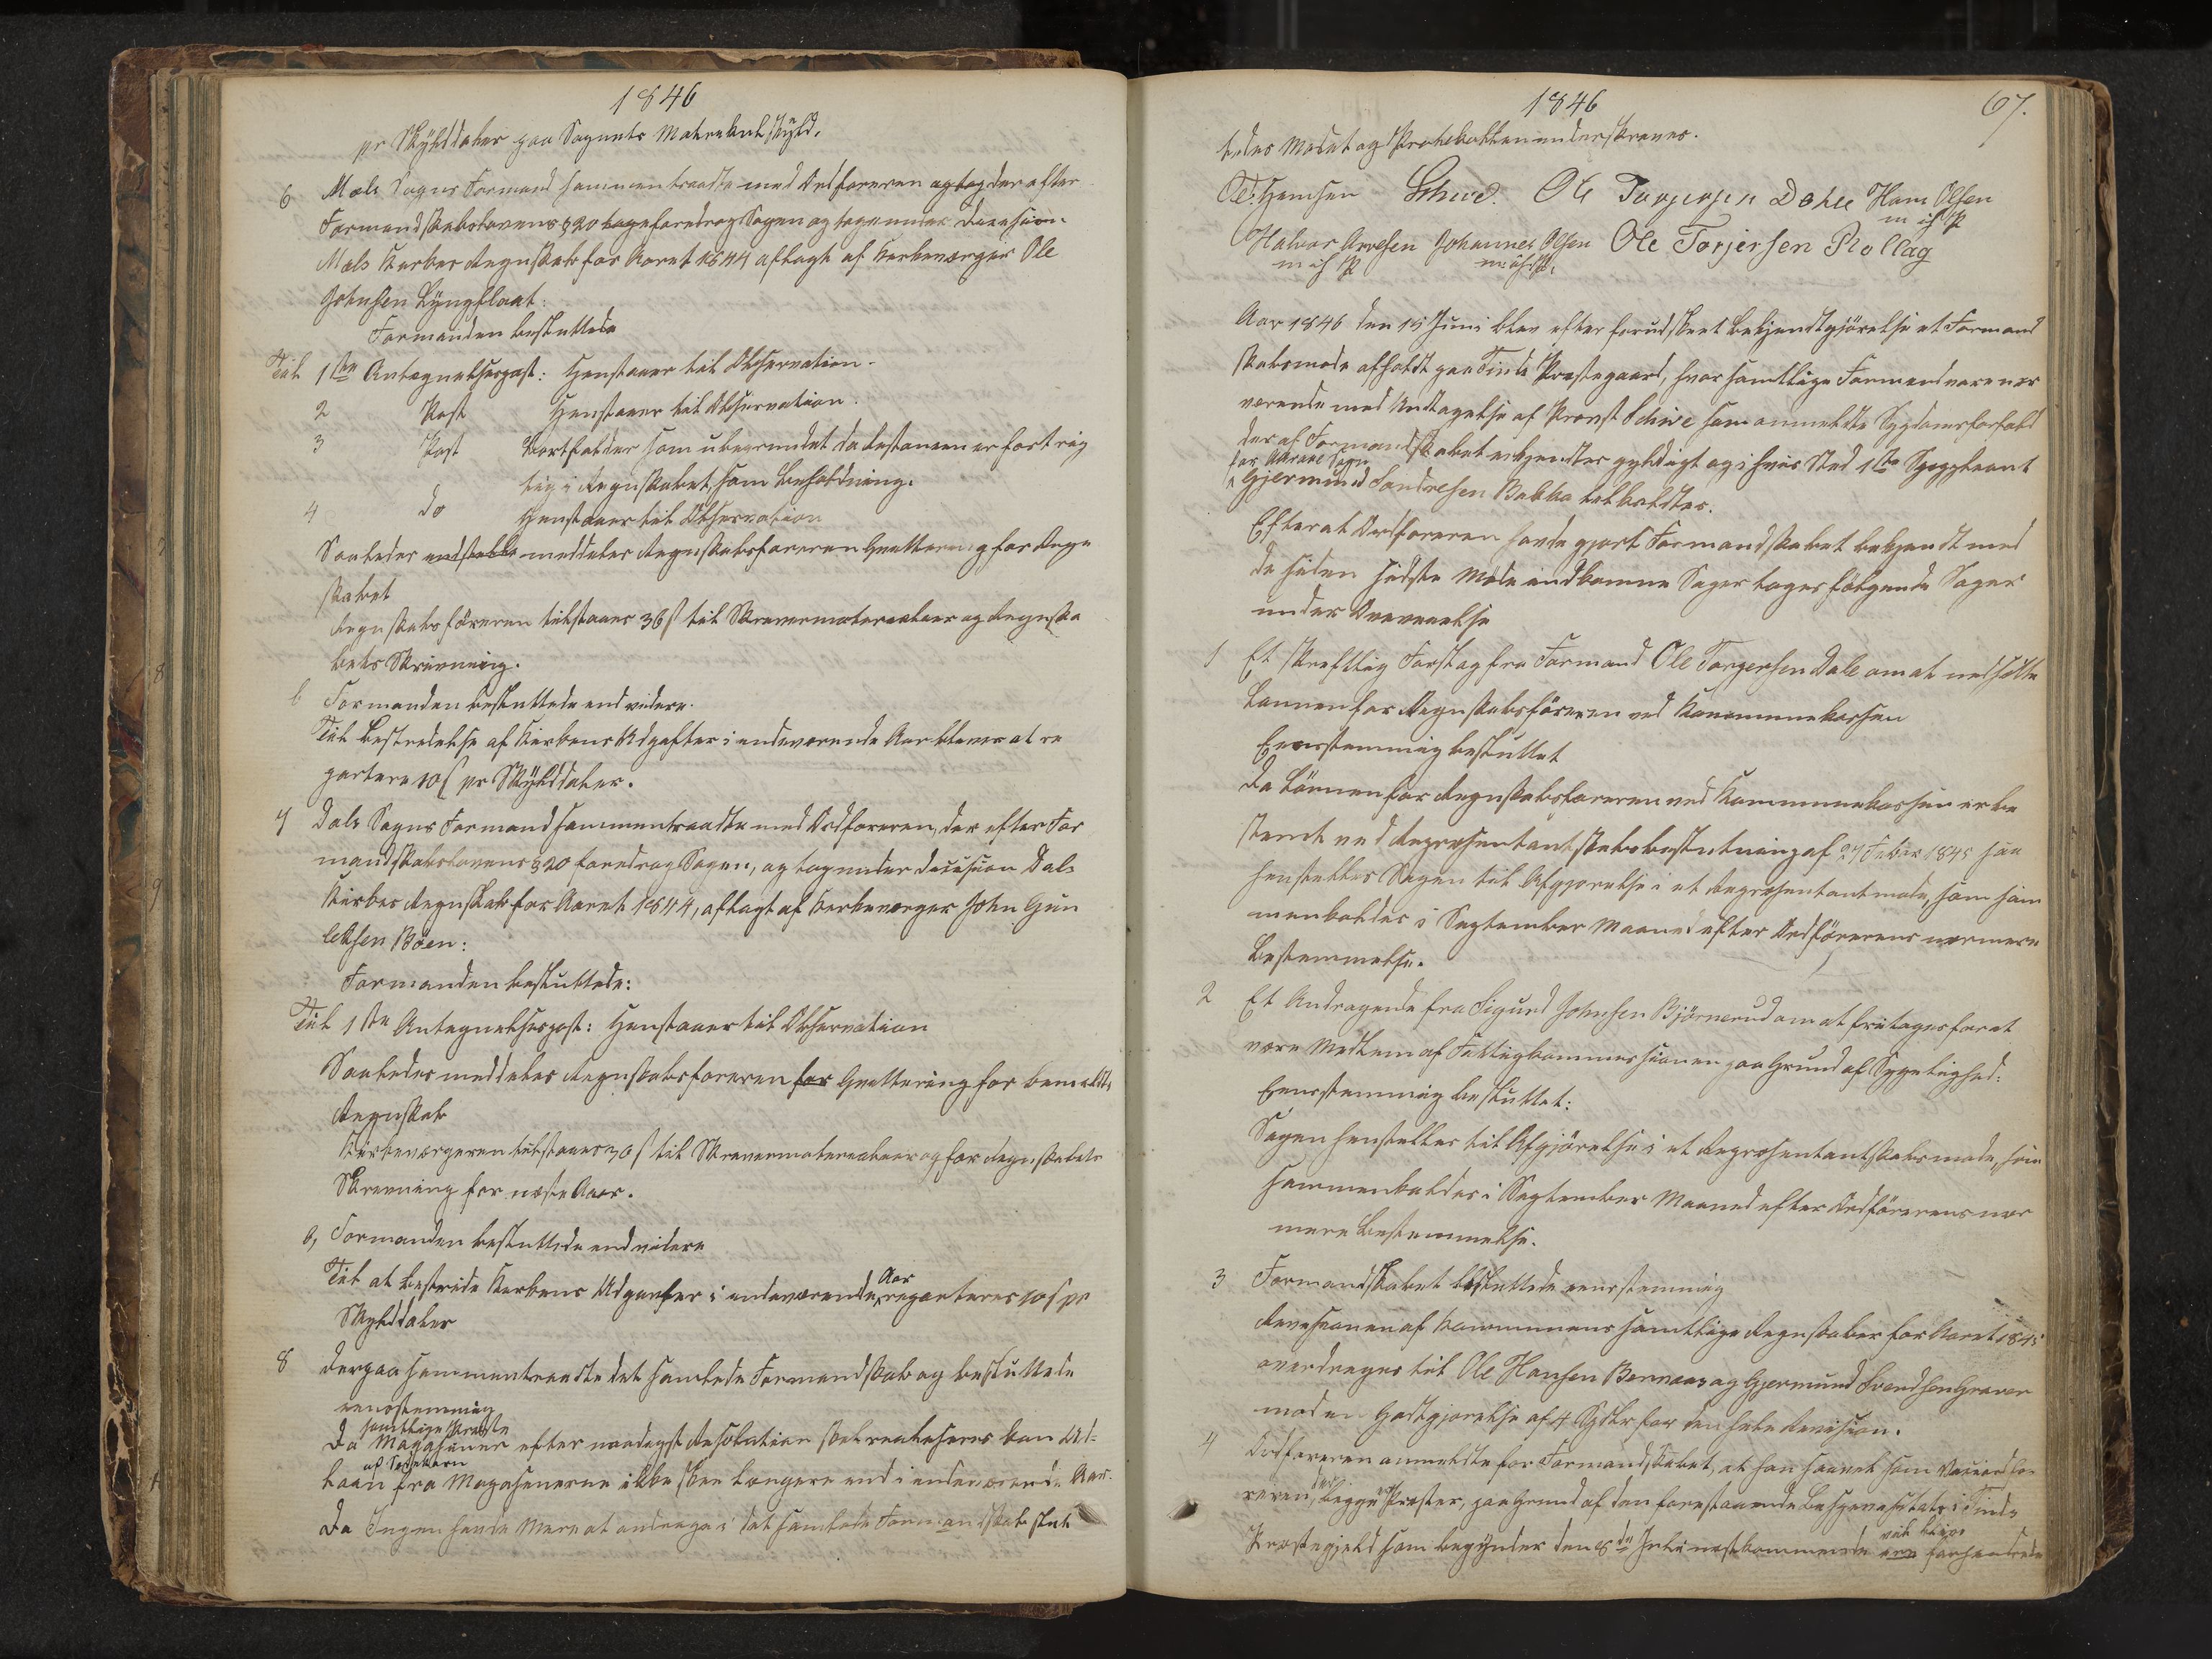 1846
pr Skylddaler paa Sognets Matrikulskyld.
6 Mæls Sogns Formænd sammentraadte med Ordføreren og tog der efter
Formandskabslovens § 20 foredrog Sagen og toge under Decision
Mæls Kirkes Regnskab for Aaret 1844 aflagt af Kirkeværger Ole
Johnsen Lyngflaat:
Formanden besluttede
Til 1ste Antegnelsespost: Henstaaer til Observation.
2 Post Henstaaer til Observation.
3 Post Bortfalder som ubegrundet da Restancen er ført rig
tig i Regnskabet, som Beholdning.
4 do Henstaaer til Observation
Saaledes meddeles Regnskabsføreren Qvittering for Regn
skabet
Regnskabsføreren tilstaaes 36 ß til Skrivermaterialier og Regnska
bets Skrivning.
b Formanden besluttede end videre.
Til Bestridelse af Kirkens Udgifter i indeværende Aar bliver at re
partere 10 ß pr Skylddaler.
7 Dals Sogns Formænd sammentraadte med Ordføreren, der efter For
mandskabslovens § 20 foredrog Sagen, og tog under Decision Dals
Kirkes Regnskab for Aaret 1844, aflagt af Kirkeværger John Gun
leksen Bøen:
Formanden besluttede:
Til 1ste Antegnelsespost: Henstaaer til Observation
Saaledes meddeles Regnskabsføreren for Qvittering for bemeldte
Regnskab
Kirkeværgeren tilstaaes 30 ß til Skrivermaterialier og for Regnskabets
Skrivning for næste Aar.
b, Formanden besluttede end videre
Til at bestride Kirkens Udgifter i indeværende Aar reparteres 10 ß pr
Skylddaler
8 Derpaa sammentraadte det samlede Formandskab og besluttede
eenstemmig
Da samtlige Magasiner efter naadigst Resolution skal realiseres kan Ud-
laan af Sædekorn fra Magasinerne ikke skee længere end i indeværende Aar.
Da Ingen havde Mere at andrage i det samlede Formandskab slut
1846 67.
tedes Mødet og Protokollen underskreves.
Ol: Hansen Schive. Ole Torgersen Dahle Hans Olsen
m i h P
Halvor Arvesen Johannes Olsen Ole Torjersen Rollag
m i h P
Aar 1846 den 15 Juni blev efter forudskeet Bekjendtgjørelse et Formand
skabsmøde afholdt paa Tinds Præstegaard, hvor samtlige Formænd vare nær
værende med Undtagelse af Provst Schive som anmeldte Sygdomsforfald
der af Formandskabet erkjendtes gyldigt og i hvis Sted 1ste Suppleant
for Sogn Gjermund Sondresen Bakka tilkaldtes.
Efterat Ordføreren havde gjort Formandskabet bekjendt med
de siden sidste Møde indkomne Sager toges følgende Sager
under Overveielse
1 Et skriftlig Forslag fra Formand Ole Torgersen Dale om at nedsætte
Lønnen for Regnskabsføreren ved Kommunekassen
Eensstemmig besluttet
Da Lønnen for Regnskabsføreren ved Kommunekassen er be
stemt ved Repræsentantskabsbeslutning af 27 Febr 1845 saa
henstilles Sagen til Afgjørelse i et Repræsentantmøde, som sam
menkaldes i September Maaned efter Ordførerens nærmere
Bestemmelse.
2 Et Andragende fra Sigurd Johnsen Bjørnerud om at fritages for at
være Medlem af Fattigkommissionen paa Grund af Sygelighed:
Eensstemmig besluttet:
Sagen henstilles til Afgjørelse i et Repræsentantskabsmøde, som
sammenkaldes i September Maaned efter Ordførerens nær
mere Bestemmelse.
3 Formandskabet besluttede eensstemmig
Revisionen af Kommunens samtlige Regnskaber for Aaret 1845
overdrages til Ole Hansen Bernaas og Gjermund Svendsen Graver
mod en Godtgjørelse af 4 Spdlr for den hele Revision.
4 Ordføreren anmeldte for Formandskabet, at han saavel som
begge er Præster, paa Grund af den forestaaende i Tinds
Præstegjeld som begynder den 8de Juli næstkommende vil blive forhindrede